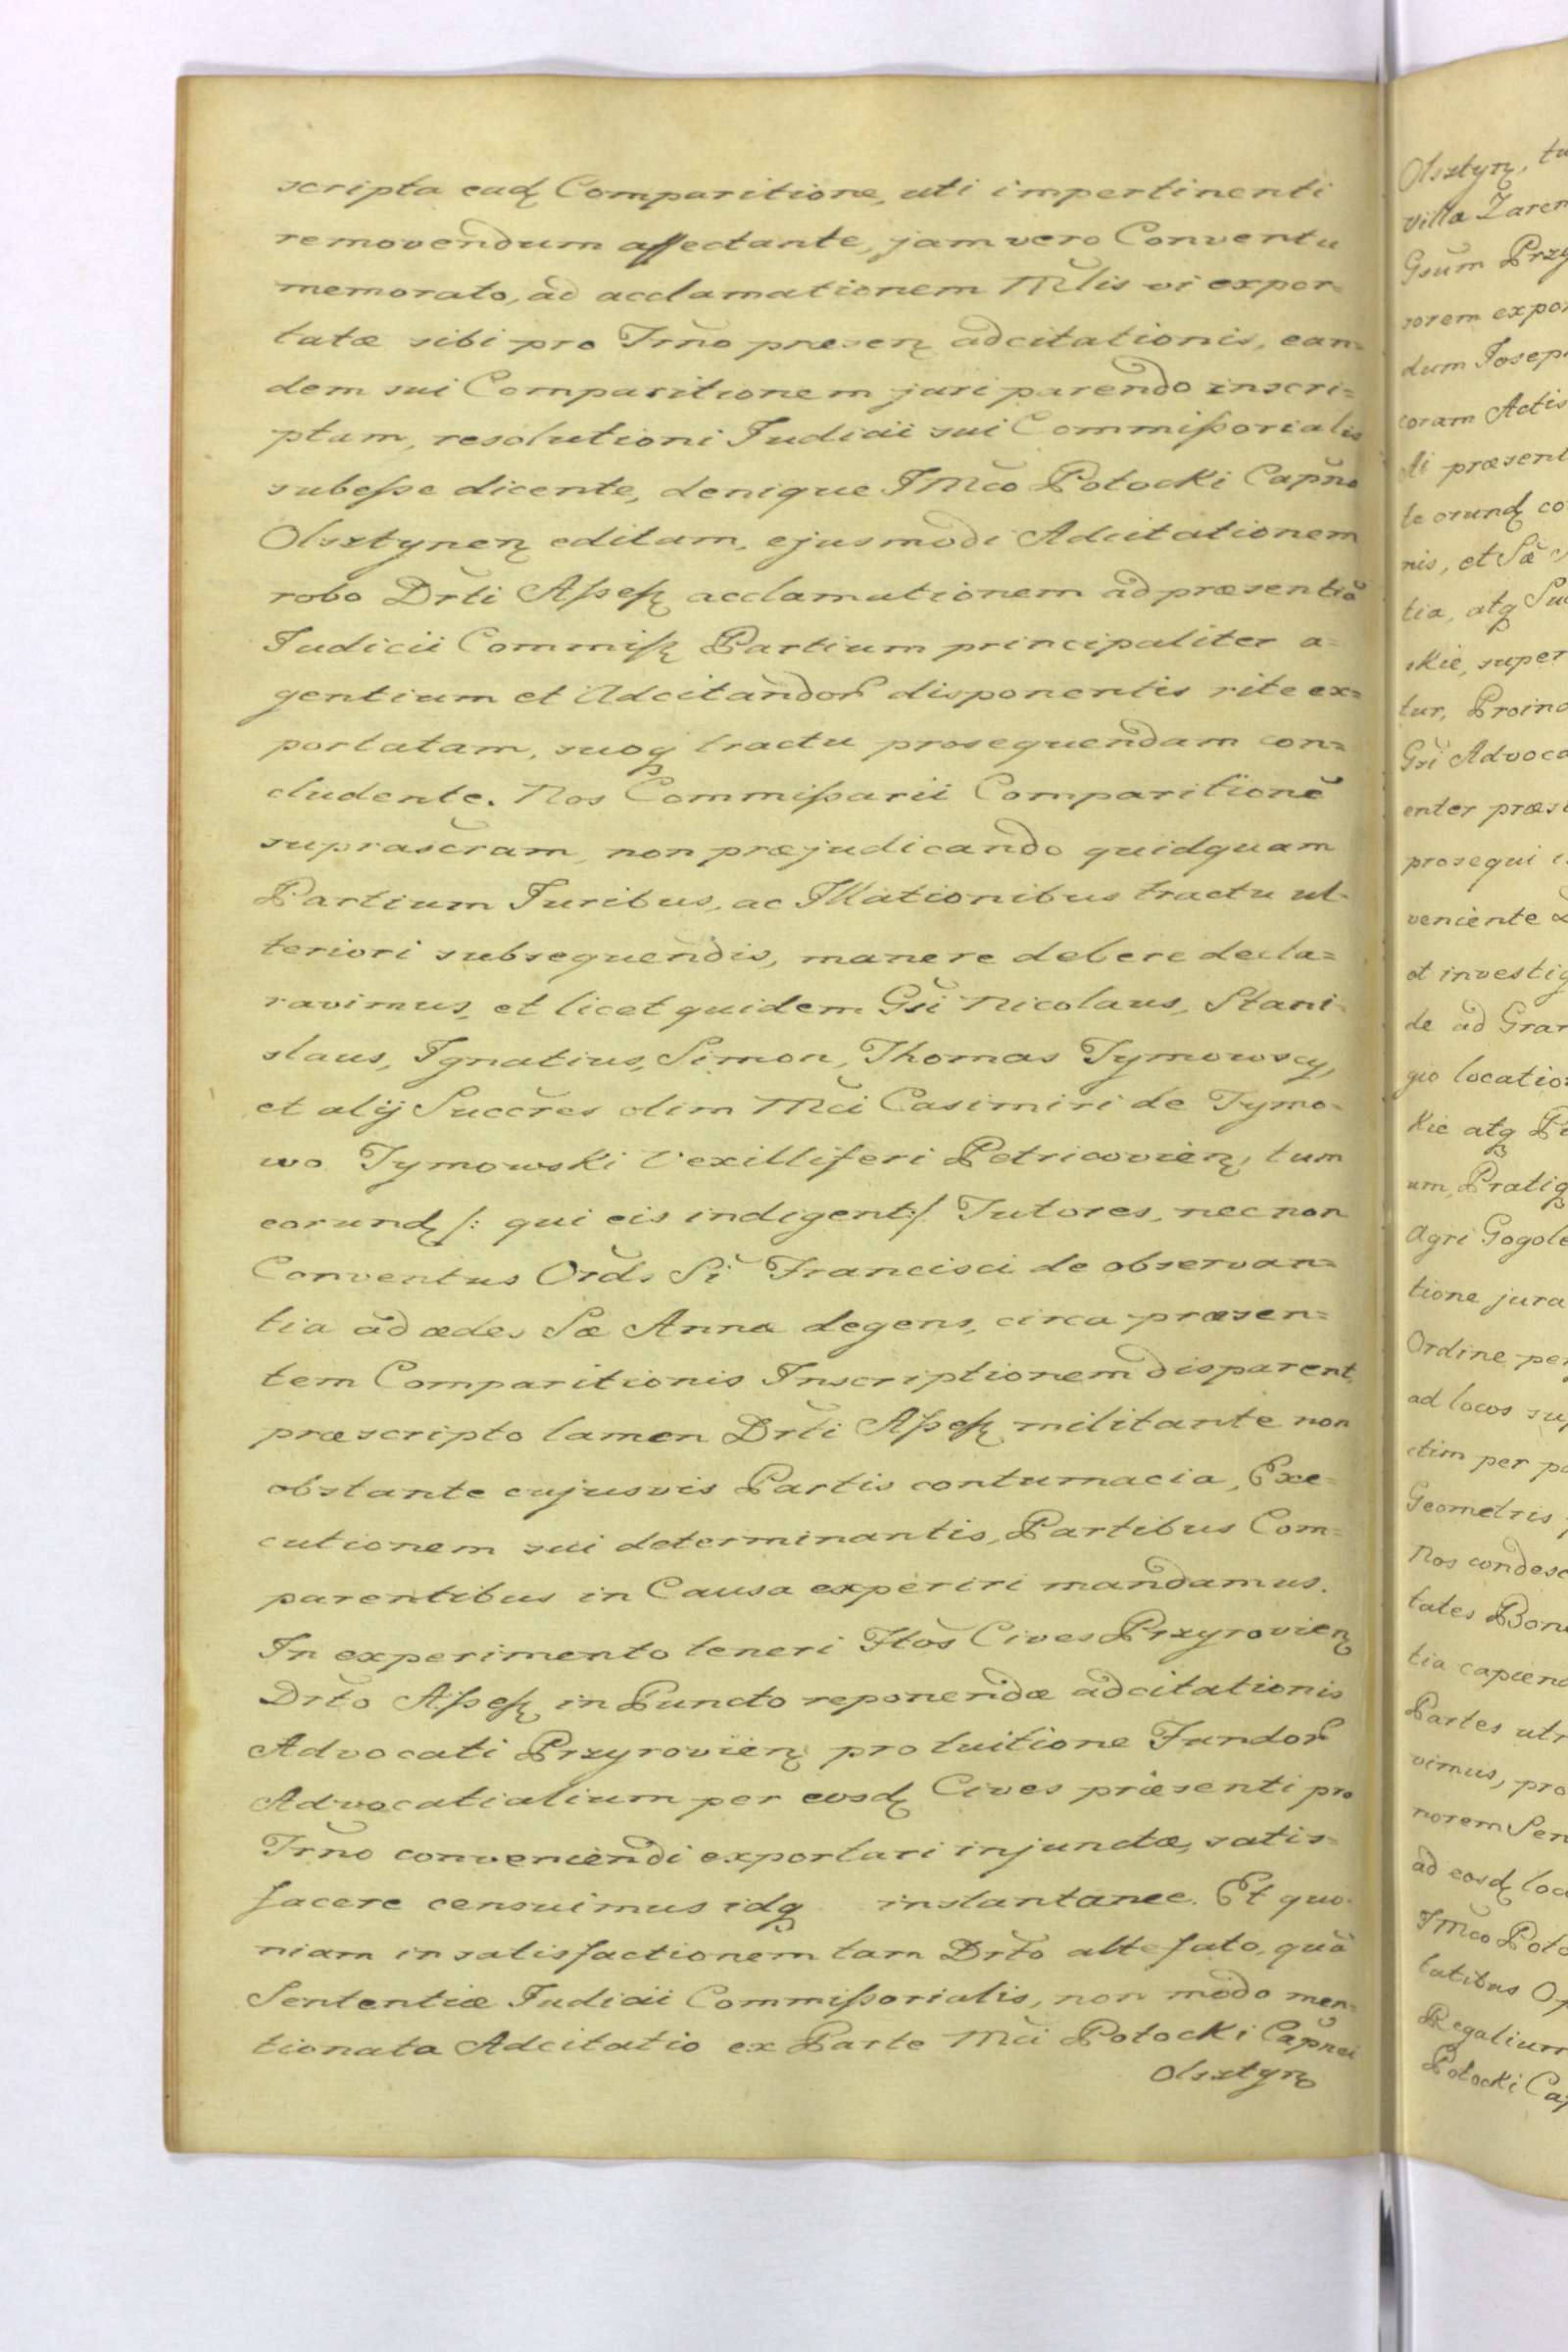 scripta ead Comparitione, uti impertinenti
removendum affectante, jam vero Conventu
memorato, ad acclamationem Mtis vi expor=
tatæ sibi pro Trno præsen adcitationis, ean=
dem sui Comparitionem juri parendo inscri=
ptam, resolutioni Judicii sui Commißorialis
subeße dicente, denique JMco Potocki Capño
Olsztynen editam, ejusmodi Adcitationem
robo Drti Aßeß acclamationem ad præsentiã
Judicii Commiß Partium principaliter a=
gentium et Adcitandor disponentis rite ex=
portatam, suoq tractu prosequendam con=
cludente. Nos Commißarii Comparitionẽ
suprascram, non præjudicando quidquam
Partium Juribus, ac Illationibus tractu ul-
teriori subsequendis, manere debere decla=
ravimus, et licet quidem Gsi Nicolaus, Stani-
slaus, Ignatius, Simon, Thomas Tymowscy,
et alij Succres olim Mci Casimiri de Tymo-
wo Tymowski Vexilliferi Petricovien, tum
eorund /: qui eis indigent :/ Tutores, nec non
Conventus Ords Si Francisci de observan=
tia ad ædes Sæ Anna degens, circa præsen=
tem Comparitionis Inscriptionem disparent,
præscripto tamen Drti Aßeß militante non
obstante cujusvis Partis contumacia, Exe=
cutionem sui determinantis, Partibus Com=
parentibus in Causa experiri mandamus.
In experimento teneri Ftos Cives Przyrovien
Drto Aßeß in Puncto reponendæ adcitationis
Advocati Przyrovien pro tuitione Fundor
Advocatialium per eosd Cives præsenti pro
Trno conveniendi exportari injunctæ, satis=
facere censuimus idq instantanee. Et quo-
niam in satisfactionem tam Drto altefato, quã
Sententiæ Judicii Commißorialis, non modo men=
tionata Adcitatio ex Parte Mci Potocki Capnei
Olsztyn
Olsztyn,
villa Zaren
Gsum Przy
sorem expor
dum Joseph
coram Actis
di præsent
te orund co
nis, et Sæ
tia, atq Su
skie, super
tur, Proind
Gsi Advoca
enter præs
prosequi i
veniente
et investig
de ad Gran
gio locatio
kie atq P
um, Pratiq
agri Gogole
tione jura
Ordine per
ad locos su
ctim per pa
Geometris
Nos condesc
tates Bon
tia capiend
Partes utr
vimus, pro
norem Sen
ad eosd loc
JMco Poto
tatibus Op
Regalium
Potocki Cap